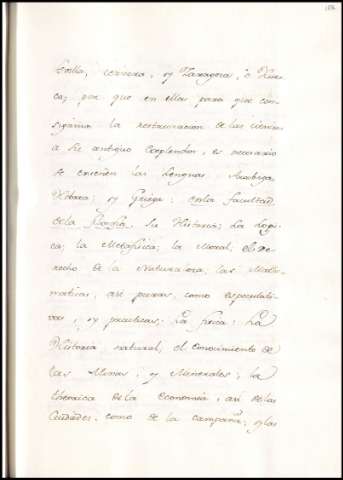 bolla, Cervera, y Zaragoza, ô Hues-
ca; por que en ellas para que con-
sigamos la restauracion de las Ciencias
a su antiguo explendor, es necesario
se enseñen las Lenguas, Arabiga,
Hebrea, y Griega: en la facultad
de la filosofia, su Historia; La Logi-
ca; la Metafisica; la Moral; el De-
recho de la Naturaleza, las Mate-
maticas, asi puras, como especulati-
vas, y practicas; La fisica; La
Historia natural; el conocimiento de
las Minas, y Minerales; la
theorica de la Economia, asi de las
Ciudades, como de la campaña; y las